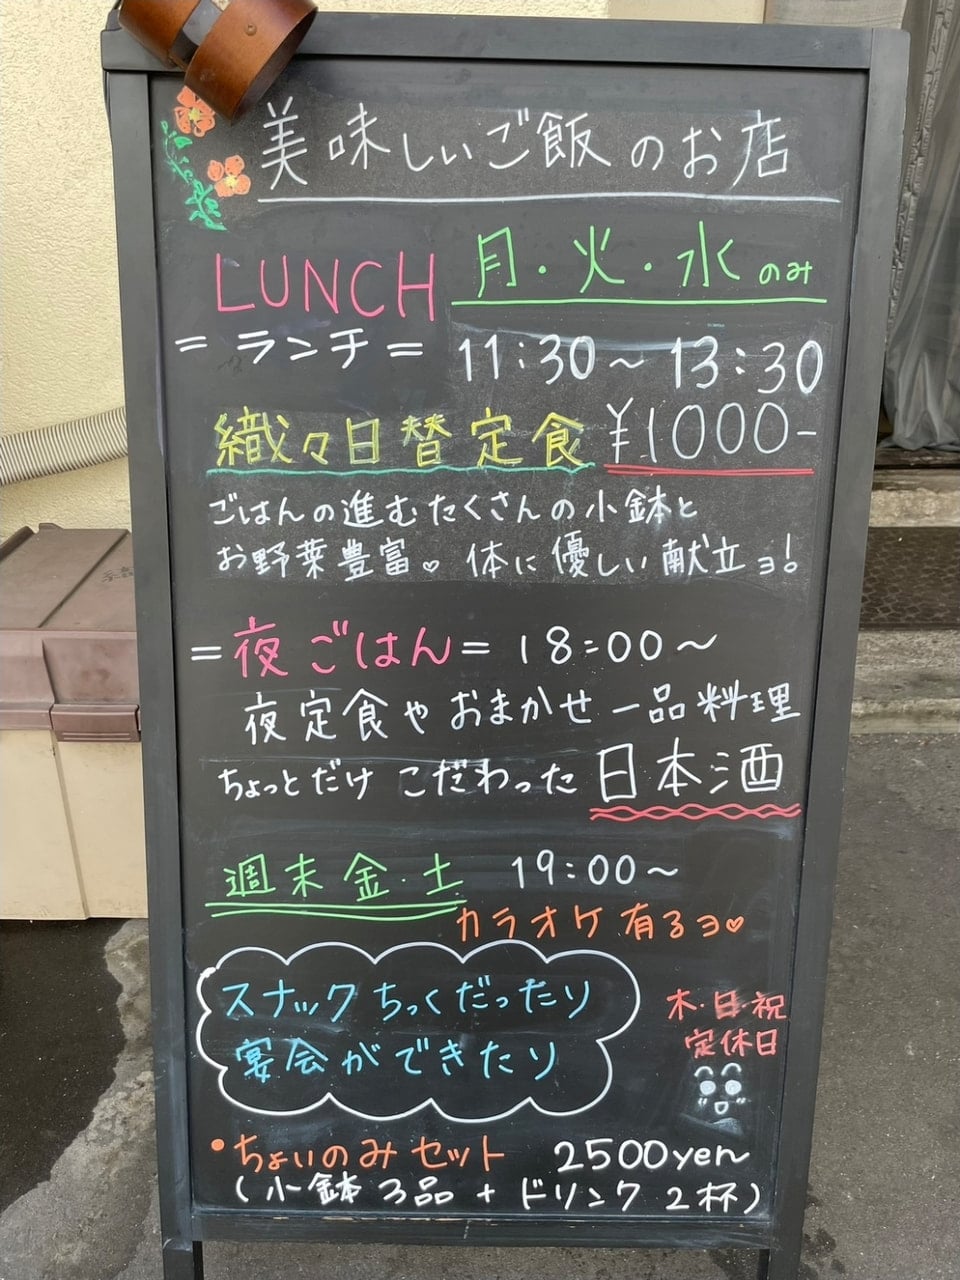 美味しいご飯のお店
LUNCH 月・火・水のみ
=ランチ= 11:30～13:30
織々日替定食 ¥1000-
ごはんの進むたくさんの小鉢と
お野菜豊富♡ 体に優しい献立ョ!
=夜ごはん= 18:00～
夜定食やおまかせ一品料理
ちょっとだけ こだわった 日本酒
週末金・土 19:00～
カラオケ有るョ♡
スナックちっくだったり
宴会ができたり
木・日・祝
定休日
•ちょいのみセット 2500yen
(小鉢3品+ドリンク2杯)